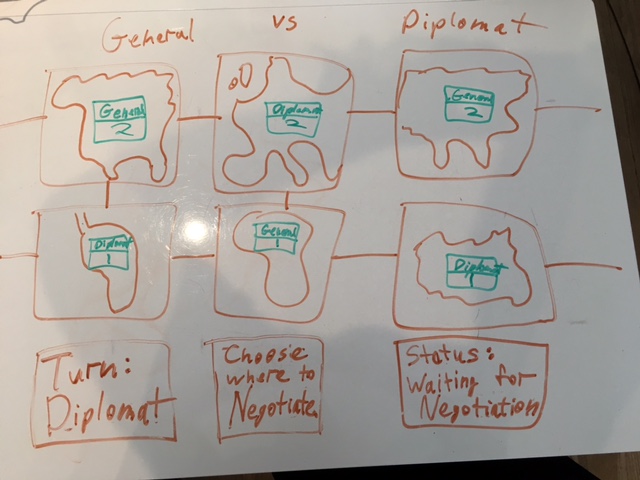 General vs Diplomat
General
2
Diplomat
2
General
2
Diplomat
1
General
1
Diplomat
1
Turn:
Diplomat
Choose
where to
Negotiate
Status:
Waiting for
Negotiation